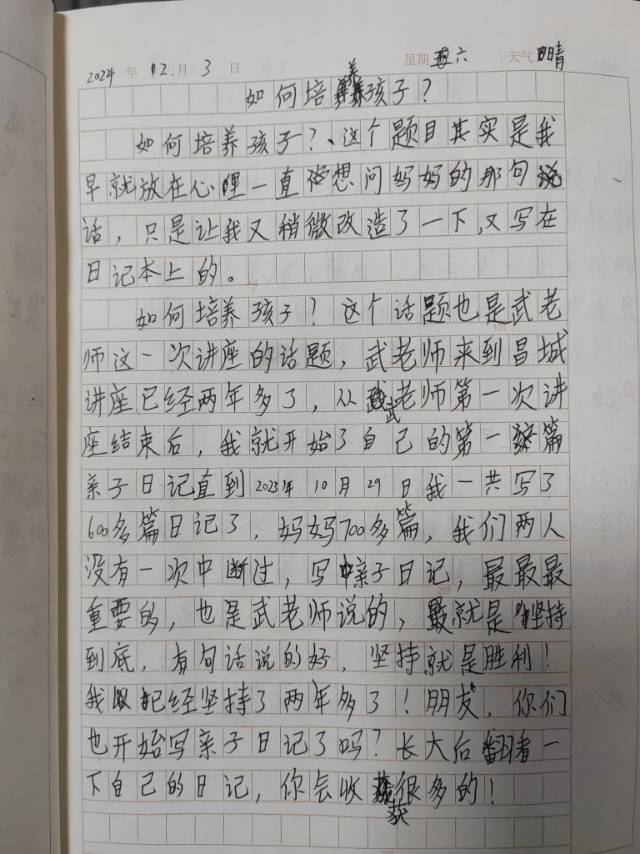 2024年12月3日 星期六 天气晴
如何培养孩子?
如何培养孩子?、这个题目其实是我
早就放在心里一直想问妈妈的那句说
话,只是让我又稍微改造了一下,又写在
日记本上的。
如何培养孩子?这个话题也是武老
师这一次讲座的话题,武老师来到昌城
讲座已经两年多了,从武老师第一次讲
座结束后,我就开始了自己的第一篇
亲子日记直到2023年10月29日我一共写了
600多篇日记了,妈妈700多篇,我们两人
没有一次中断过,写亲子日记,最最最
重要的,也是武老师说的,就是坚持
到底,有句话说的好,坚持就是胜利!
我已经坚持了两年多了!朋友,你们
也开始写亲子日记了吗?长大后翻看一
下自己的日记,你会收获很多的!